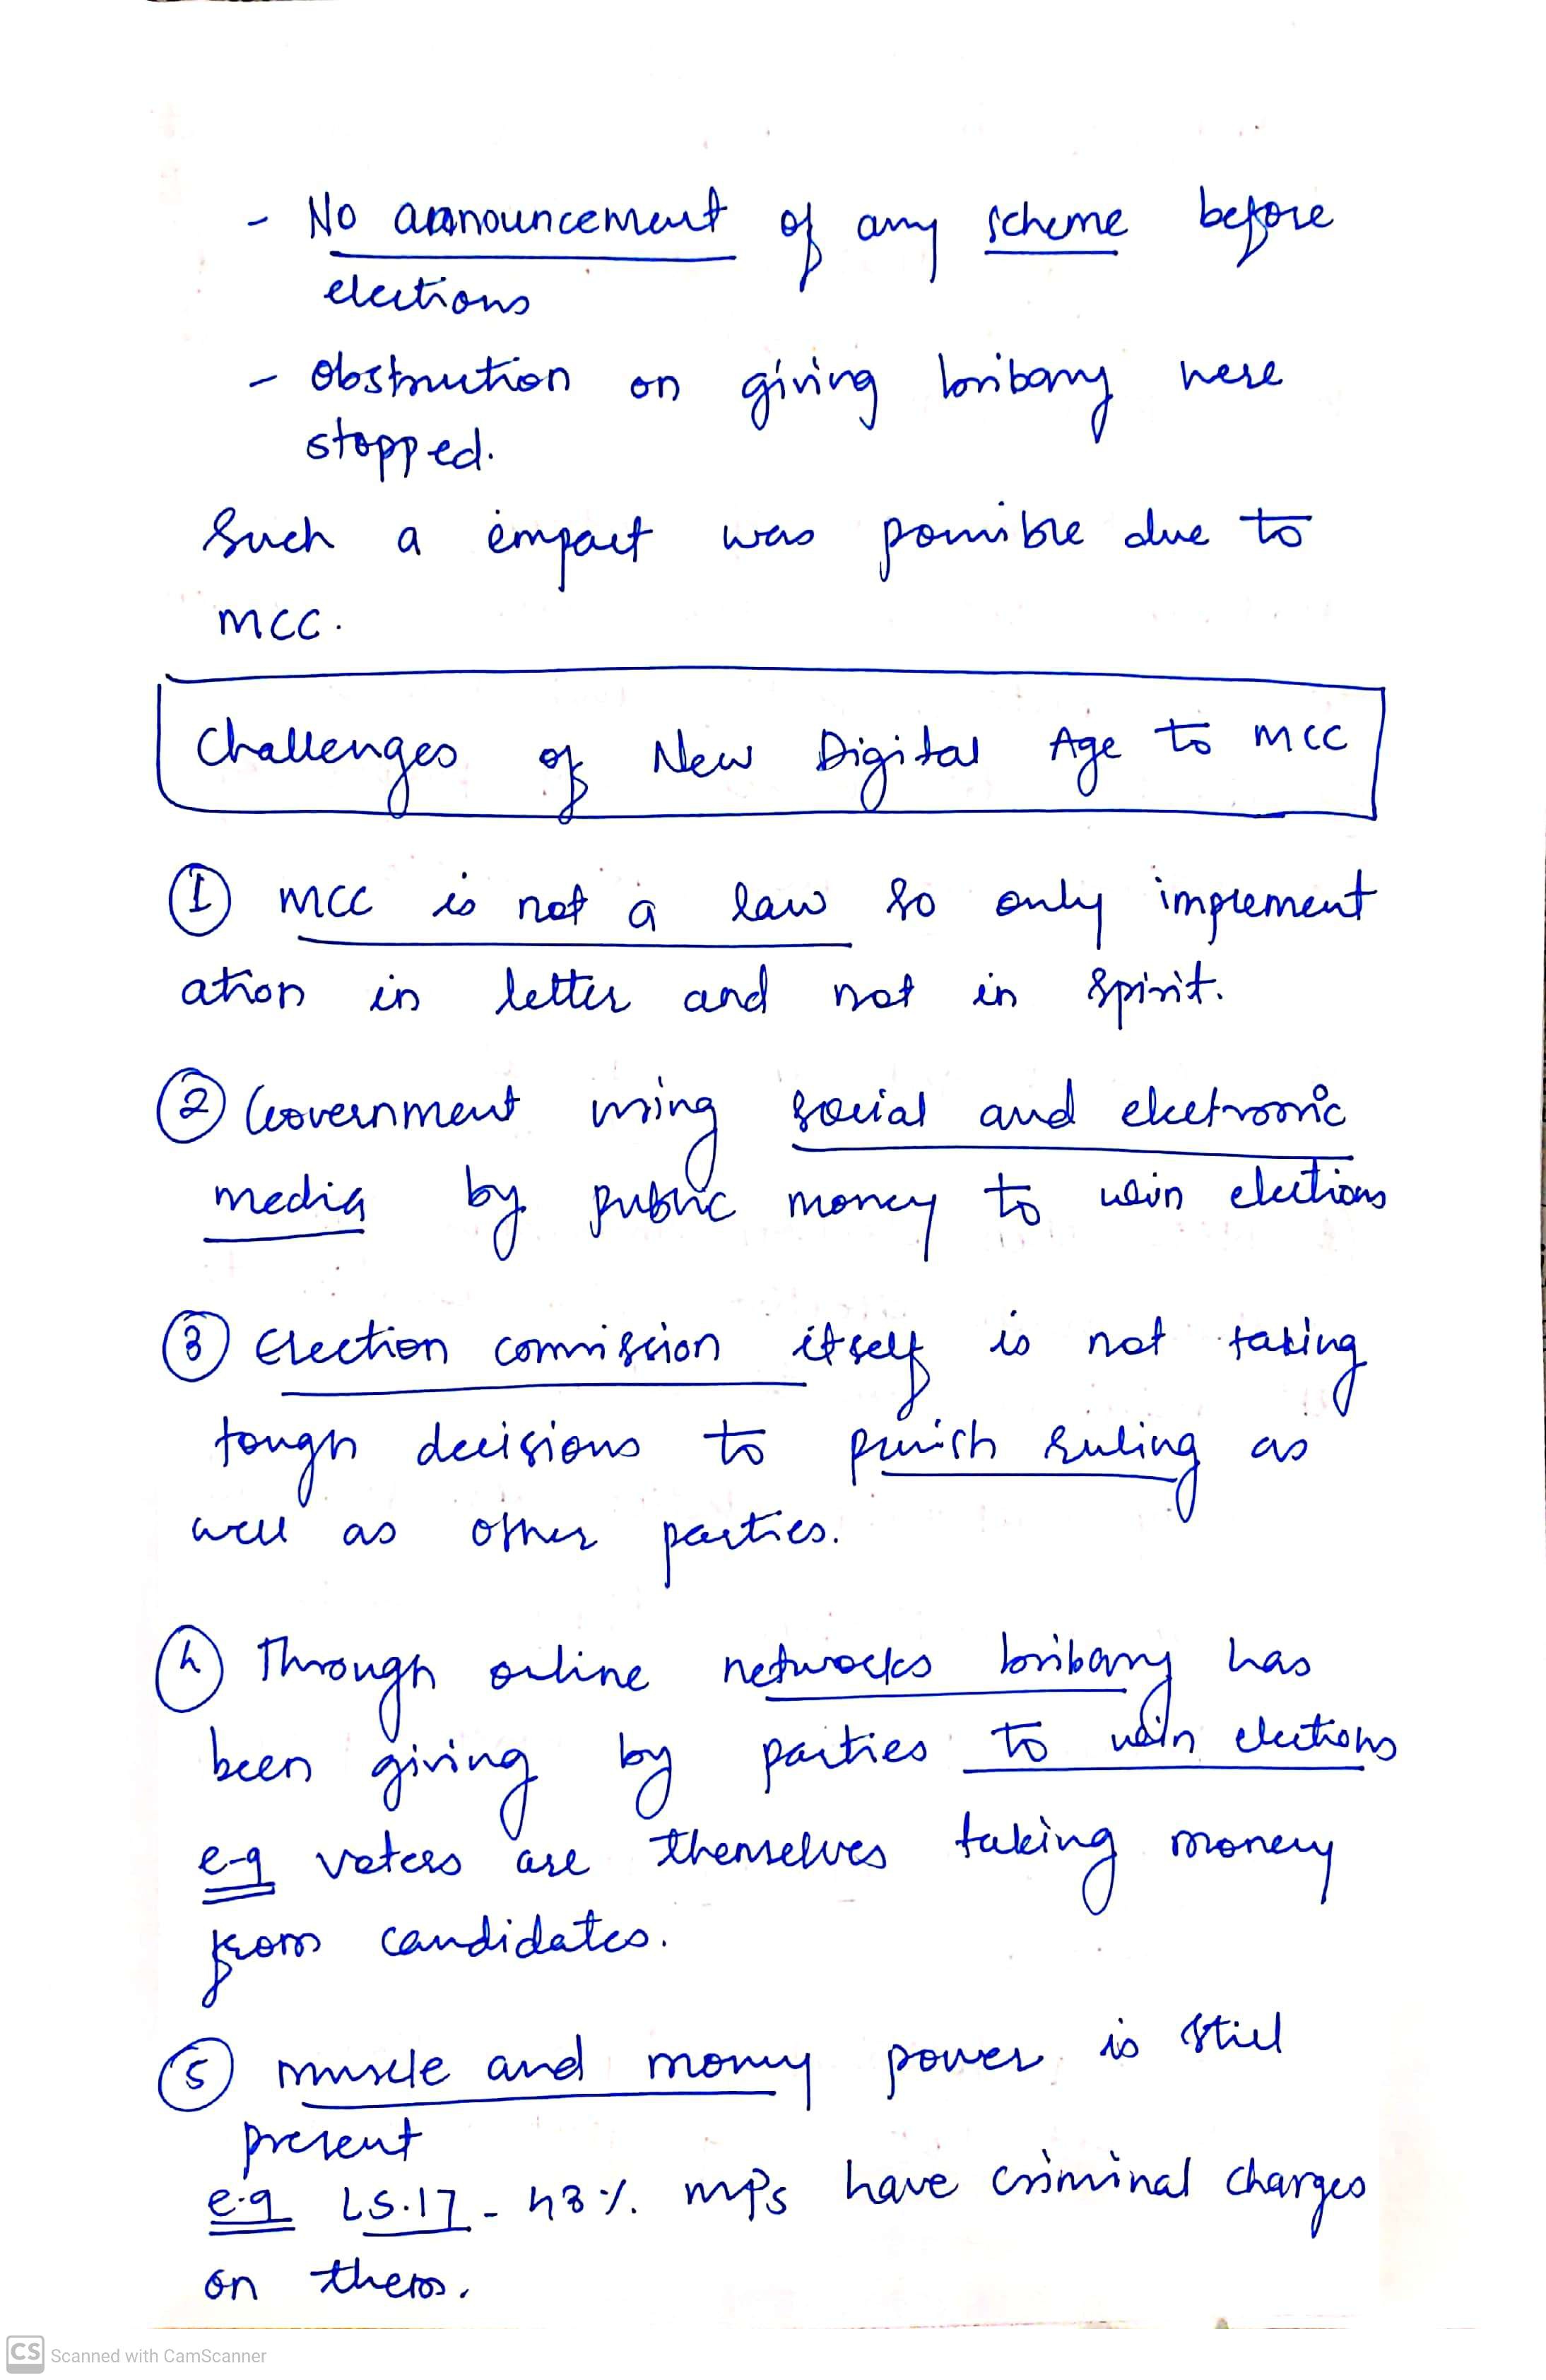 - No announcement of any scheme before
elections
- Obstruction on giving bribary here
stopped.
Such a impact was possible due to
MCC.
Challenges of New Digital Age to MCC
① MCC is not a law so only implement
ation in letter and not in spirit.
② Government using social and electronic
media by public money to win elections
③ Election commission itself is not taking
tough decisions to punish ruling as
well as other parties.
④ Through online networks bribary has
been giving by parties to win elections
e-g voters are themselves taking money
from candidates.
⑤ muscle and money power is still
present
e.g LS.17 - 43% MPs have criminal charges
on them.
CS Scanned with CamScanner